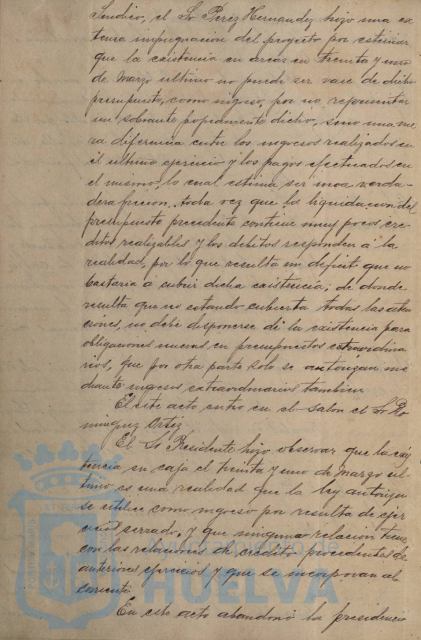 Síndico, el Sr Perez Hernandez hizo una ex
tensa impugnacion del proyecto por estimar
que la existencia en arcas en treinta y uno
de Marzo ultimo no puede ser base de dicho
presupuesto, como ingreso, por no representar
un sobrante propiamente dicho, sino una me
ra diferencia entre los ingresos realizados en
el ultimo ejercicio y los pagos efectuados en
el mismo, lo cual estima ser una verda-
dera ficcion, toda vez que la liquidacion del
presupuesto precedente contiene muy pocos cre
ditos realizables y los debitos responden á la
realidad, por lo que resulta un deficit que no
bastaria a cubrir dicha existencia; de donde
resulta que no estando cubierta todas las aten
ciones, no debe disponerse de la existencia para
obligaciones nuevas en presupuestos extraordina
rios, que por otra parte solo se autorizan me
diante ingresos extraordinarios tambien
En este acto entro en el Salon el Sr Do
minguez Ortiz
El Sr Presidente hizo observar que la exis
tencia en caja el treinta y uno de Marzo ul
timo es una realidad que la ley autoriza
se utilice como ingreso por resulta de ejer
cicio cerrado, y que ninguna relación tiene
con las relaciones de credito procedentes de
anteriores ejercicios y que se incorporan al
corriente
En este acto abandonó la presidencia
HUELVA